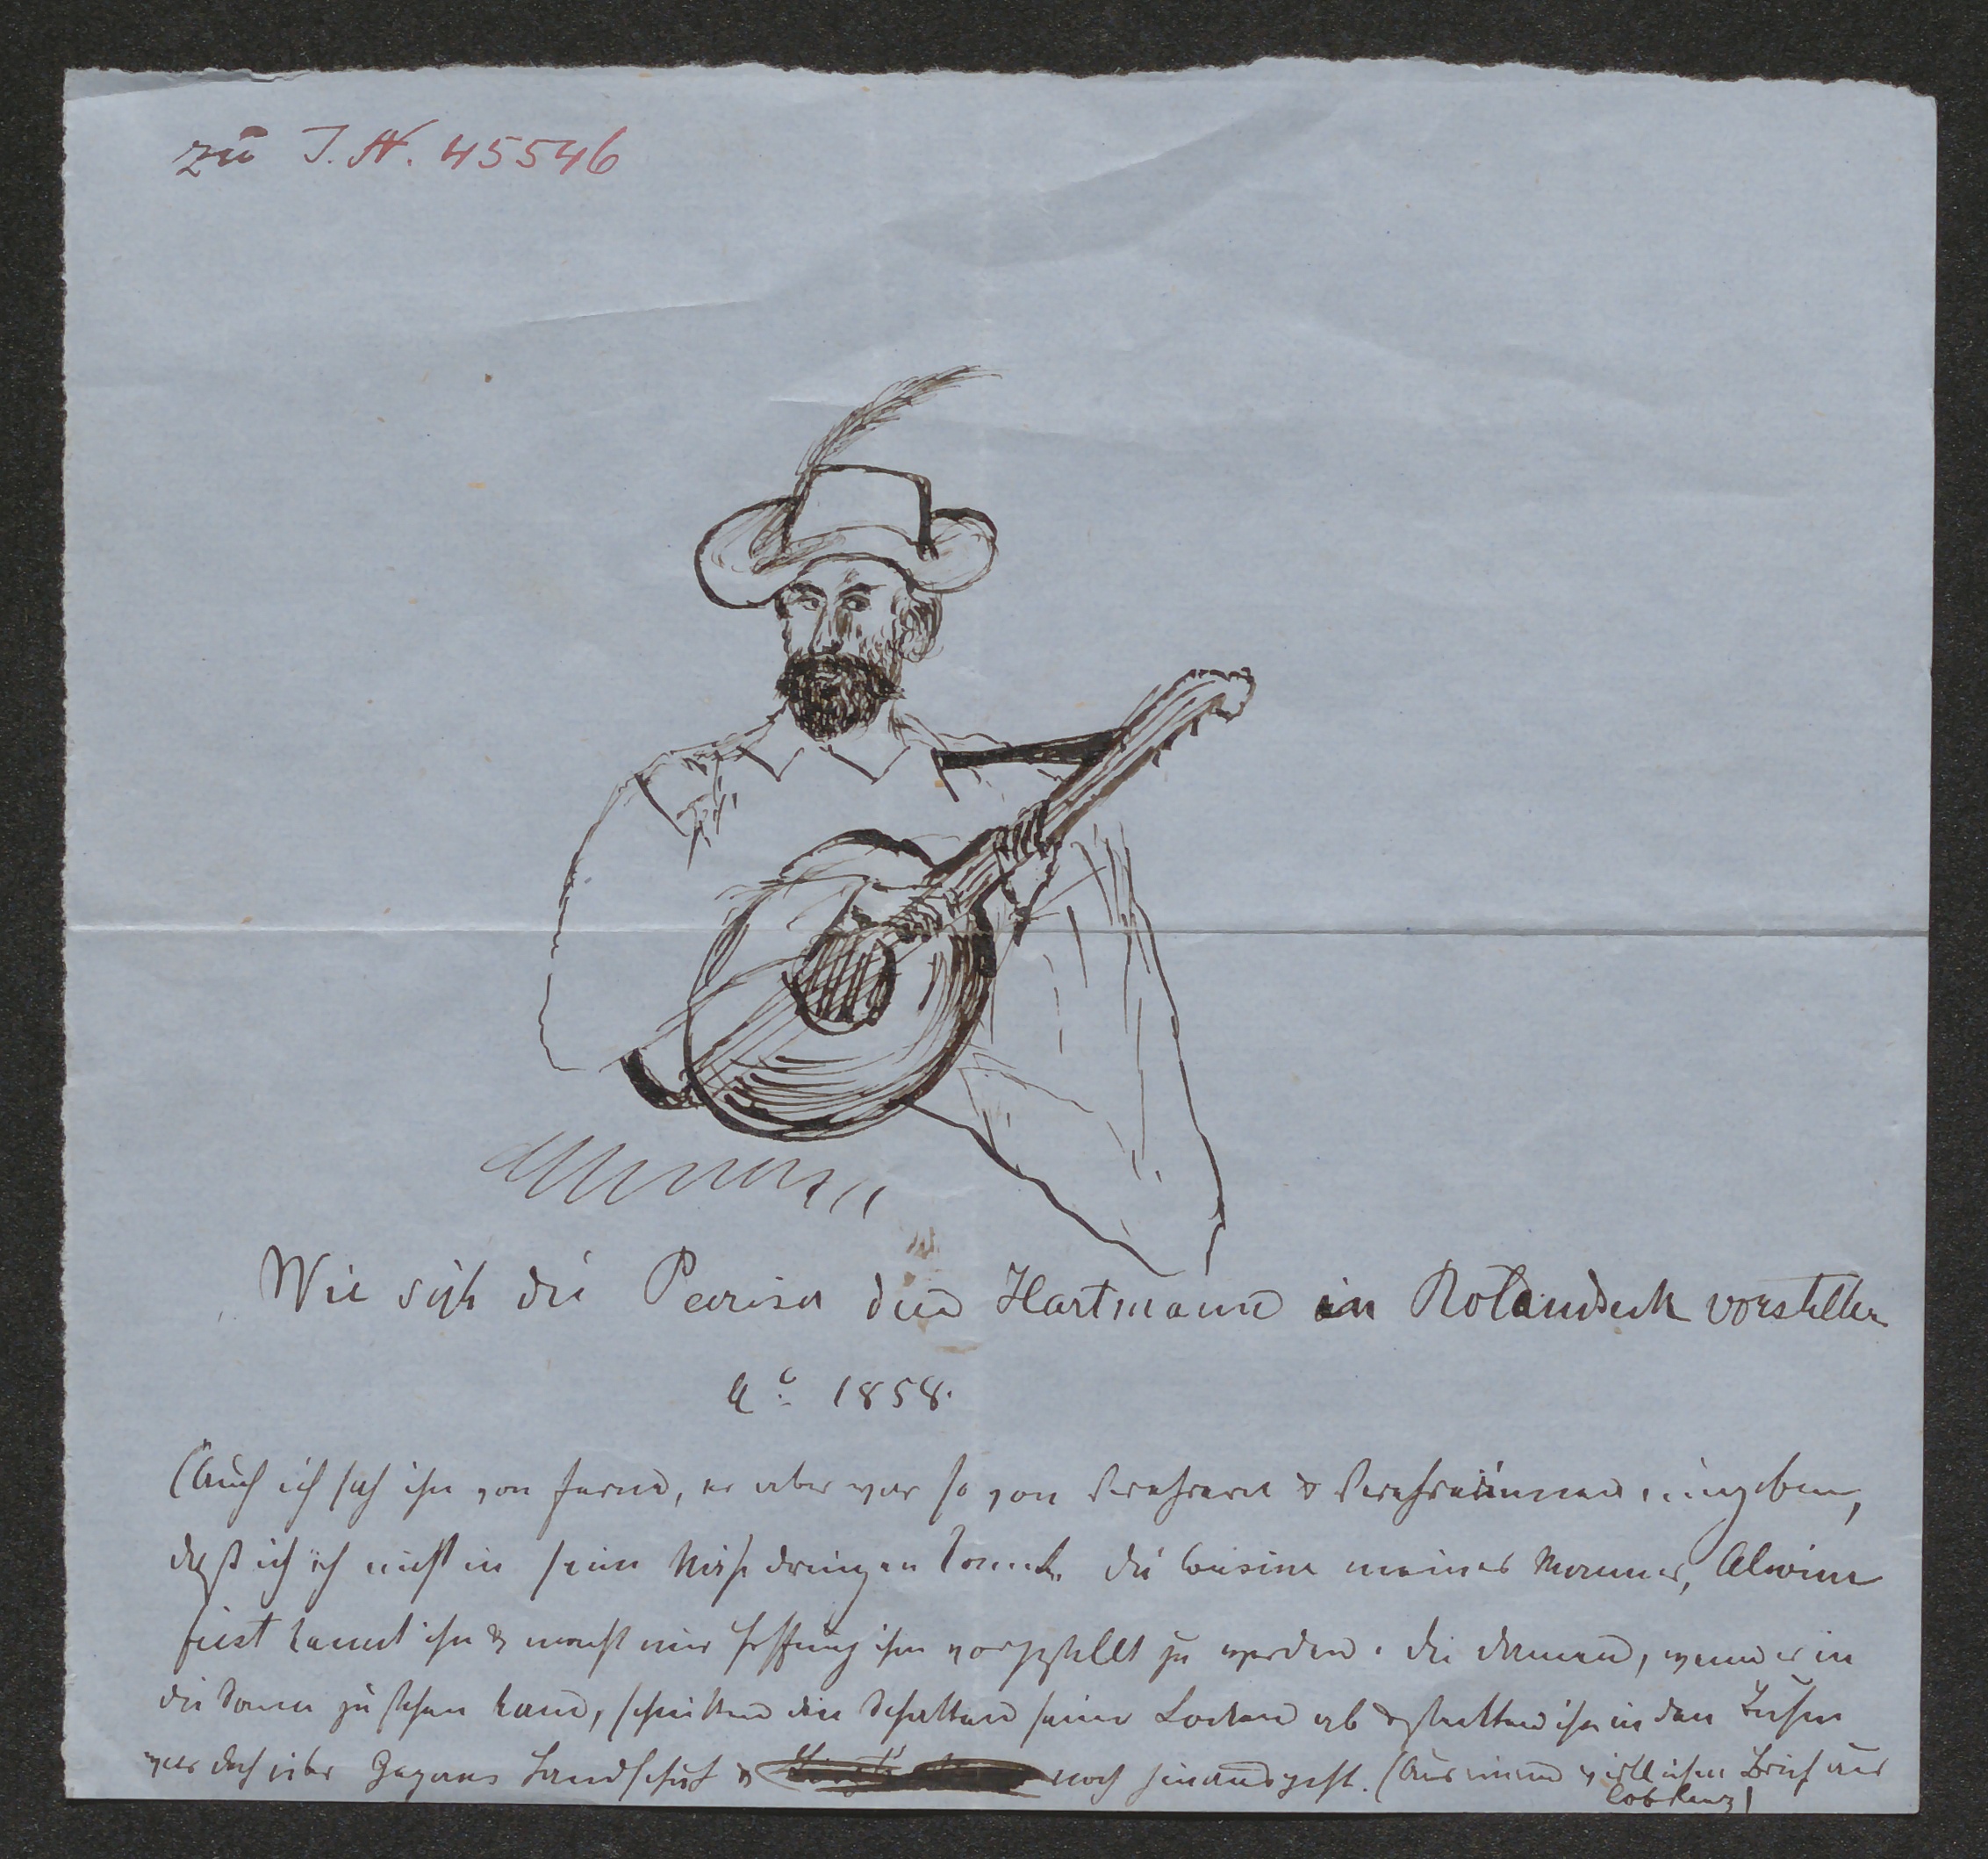 zu I. N. 45546
Wie sich die Pariser den Hartmann in Rolandseck vorstellen
1858.
(Auch ich sah ihn von ferne, er aber war so von Verehrern & Verehrerinnen umgeben,
daß ich nicht in seine Nähe dringen konnte. Die Cousine meines Mannes, Alwine
kennt ihn & macht mir Hoffnung ihm vorgestellt zu werden. Die Damen, wenn er in
die Sonne zu stehen kam, schnitten den Schatten seiner Locken ab & steckten ihn in den Busen
was doch über Gagerns Handschuh & noch hinausgeht. (Aus einem wirklichen Brief aus
Coblenz)